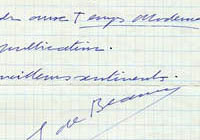 aux Temps Modernes
publication.
meilleurs sentiments.
S de Beauvoir